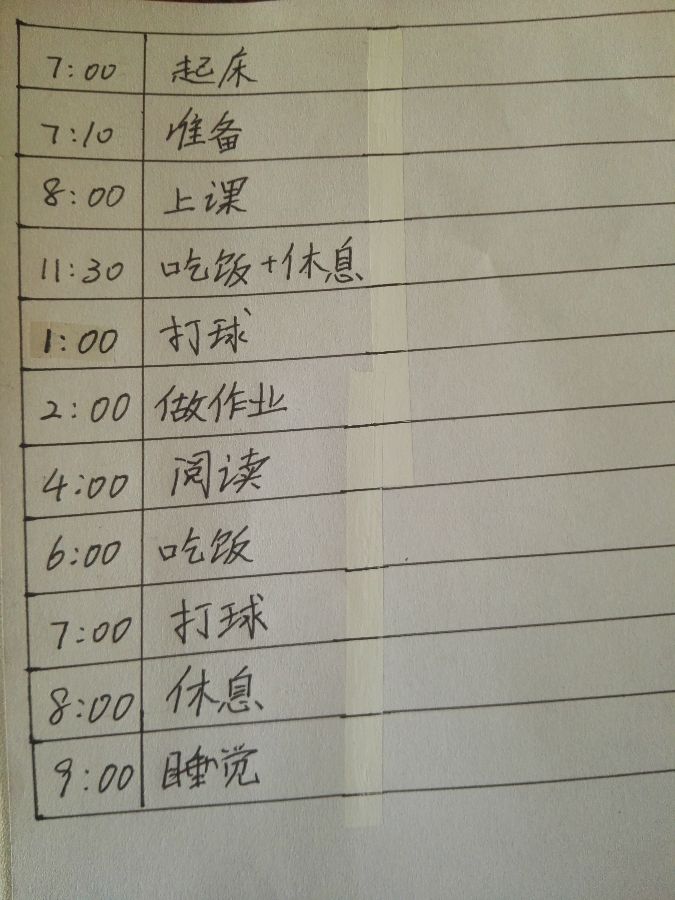 7:00 起床
7:10 准备
8:00 上课
11:30 吃饭+休息
1:00 打球
2:00 做作业
4:00 阅读
6:00 吃饭
7:00 打球
8:00 休息
9:00 睡觉